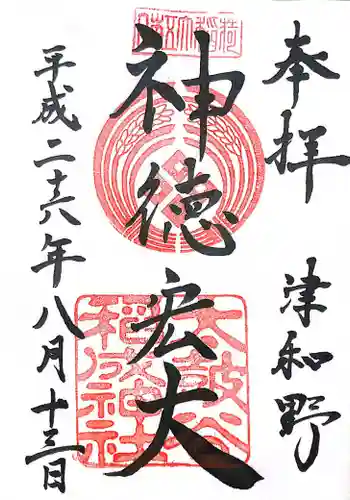 奉拝
津和野
神徳宏大
平成二十六年八月十三日
太鼓谷
稲成神社